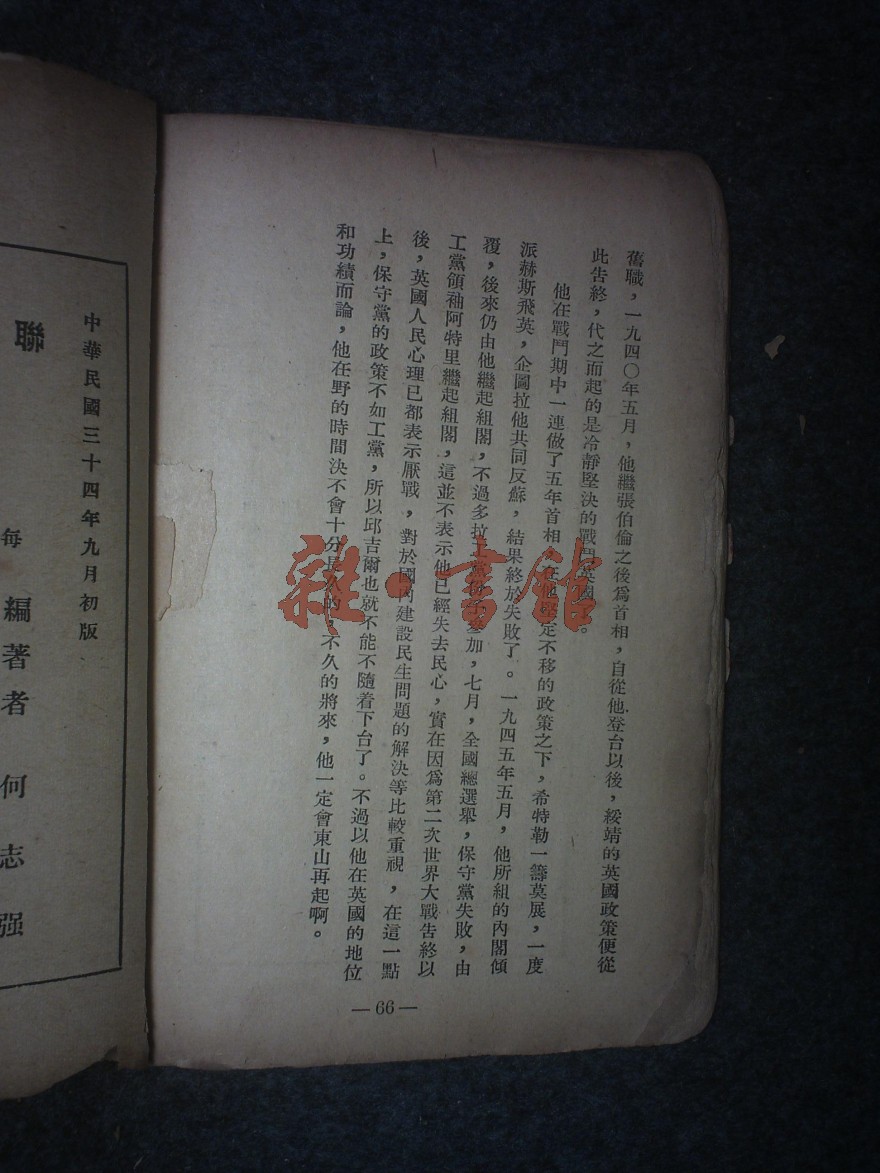 舊職，一九四〇年五月，他繼張伯倫之後爲首相，自從他登台以後，綏靖的英國政策便從
此告終，代之而起的是冷靜堅決的戰鬥英國。
他在戰鬥期中一連做了五年首相，在他堅定不移的政策之下，希特勒一籌莫展，一度
派赫斯飛英，企圖拉他共同反蘇，結果終於失敗了。一九四五年五月，他所組的內閣傾
覆，後來仍由他繼起組閣，不過多拉工黨參加，七月，全國總選舉，保守黨失敗，由
工黨領袖阿特里繼起組閣，這並不表示他已經失去民心，實在因爲第二次世界大戰告終以
後，英國人民心理已都表示厭戰，對於國內建設民生問題的解決等比較重視，在這一點
上，保守黨的政策不如工黨，所以邱吉爾也就不能不隨着下台了。不過以他在英國的地位
和功績而論，他在野的時間決不會十分長久的，不久的將來，他一定會東山再起啊。
—66—
中華民國三十四年九月初版
聯
每
編著者 何志强
雜·書館